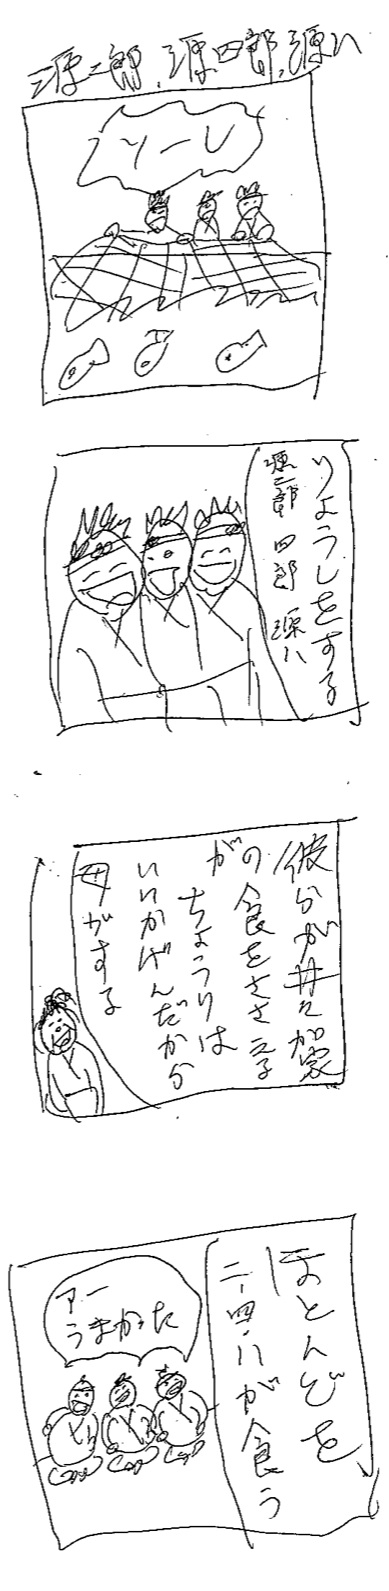 源二郎、源四郎、源八
ソーレ
りょうしをする
源二郎 四郎 源八
彼らが井上家
の食をささえる
が
ちょうりは
いいかげんだから
母がする
ほとんどを
二・四・八が食う
アー
うまかった